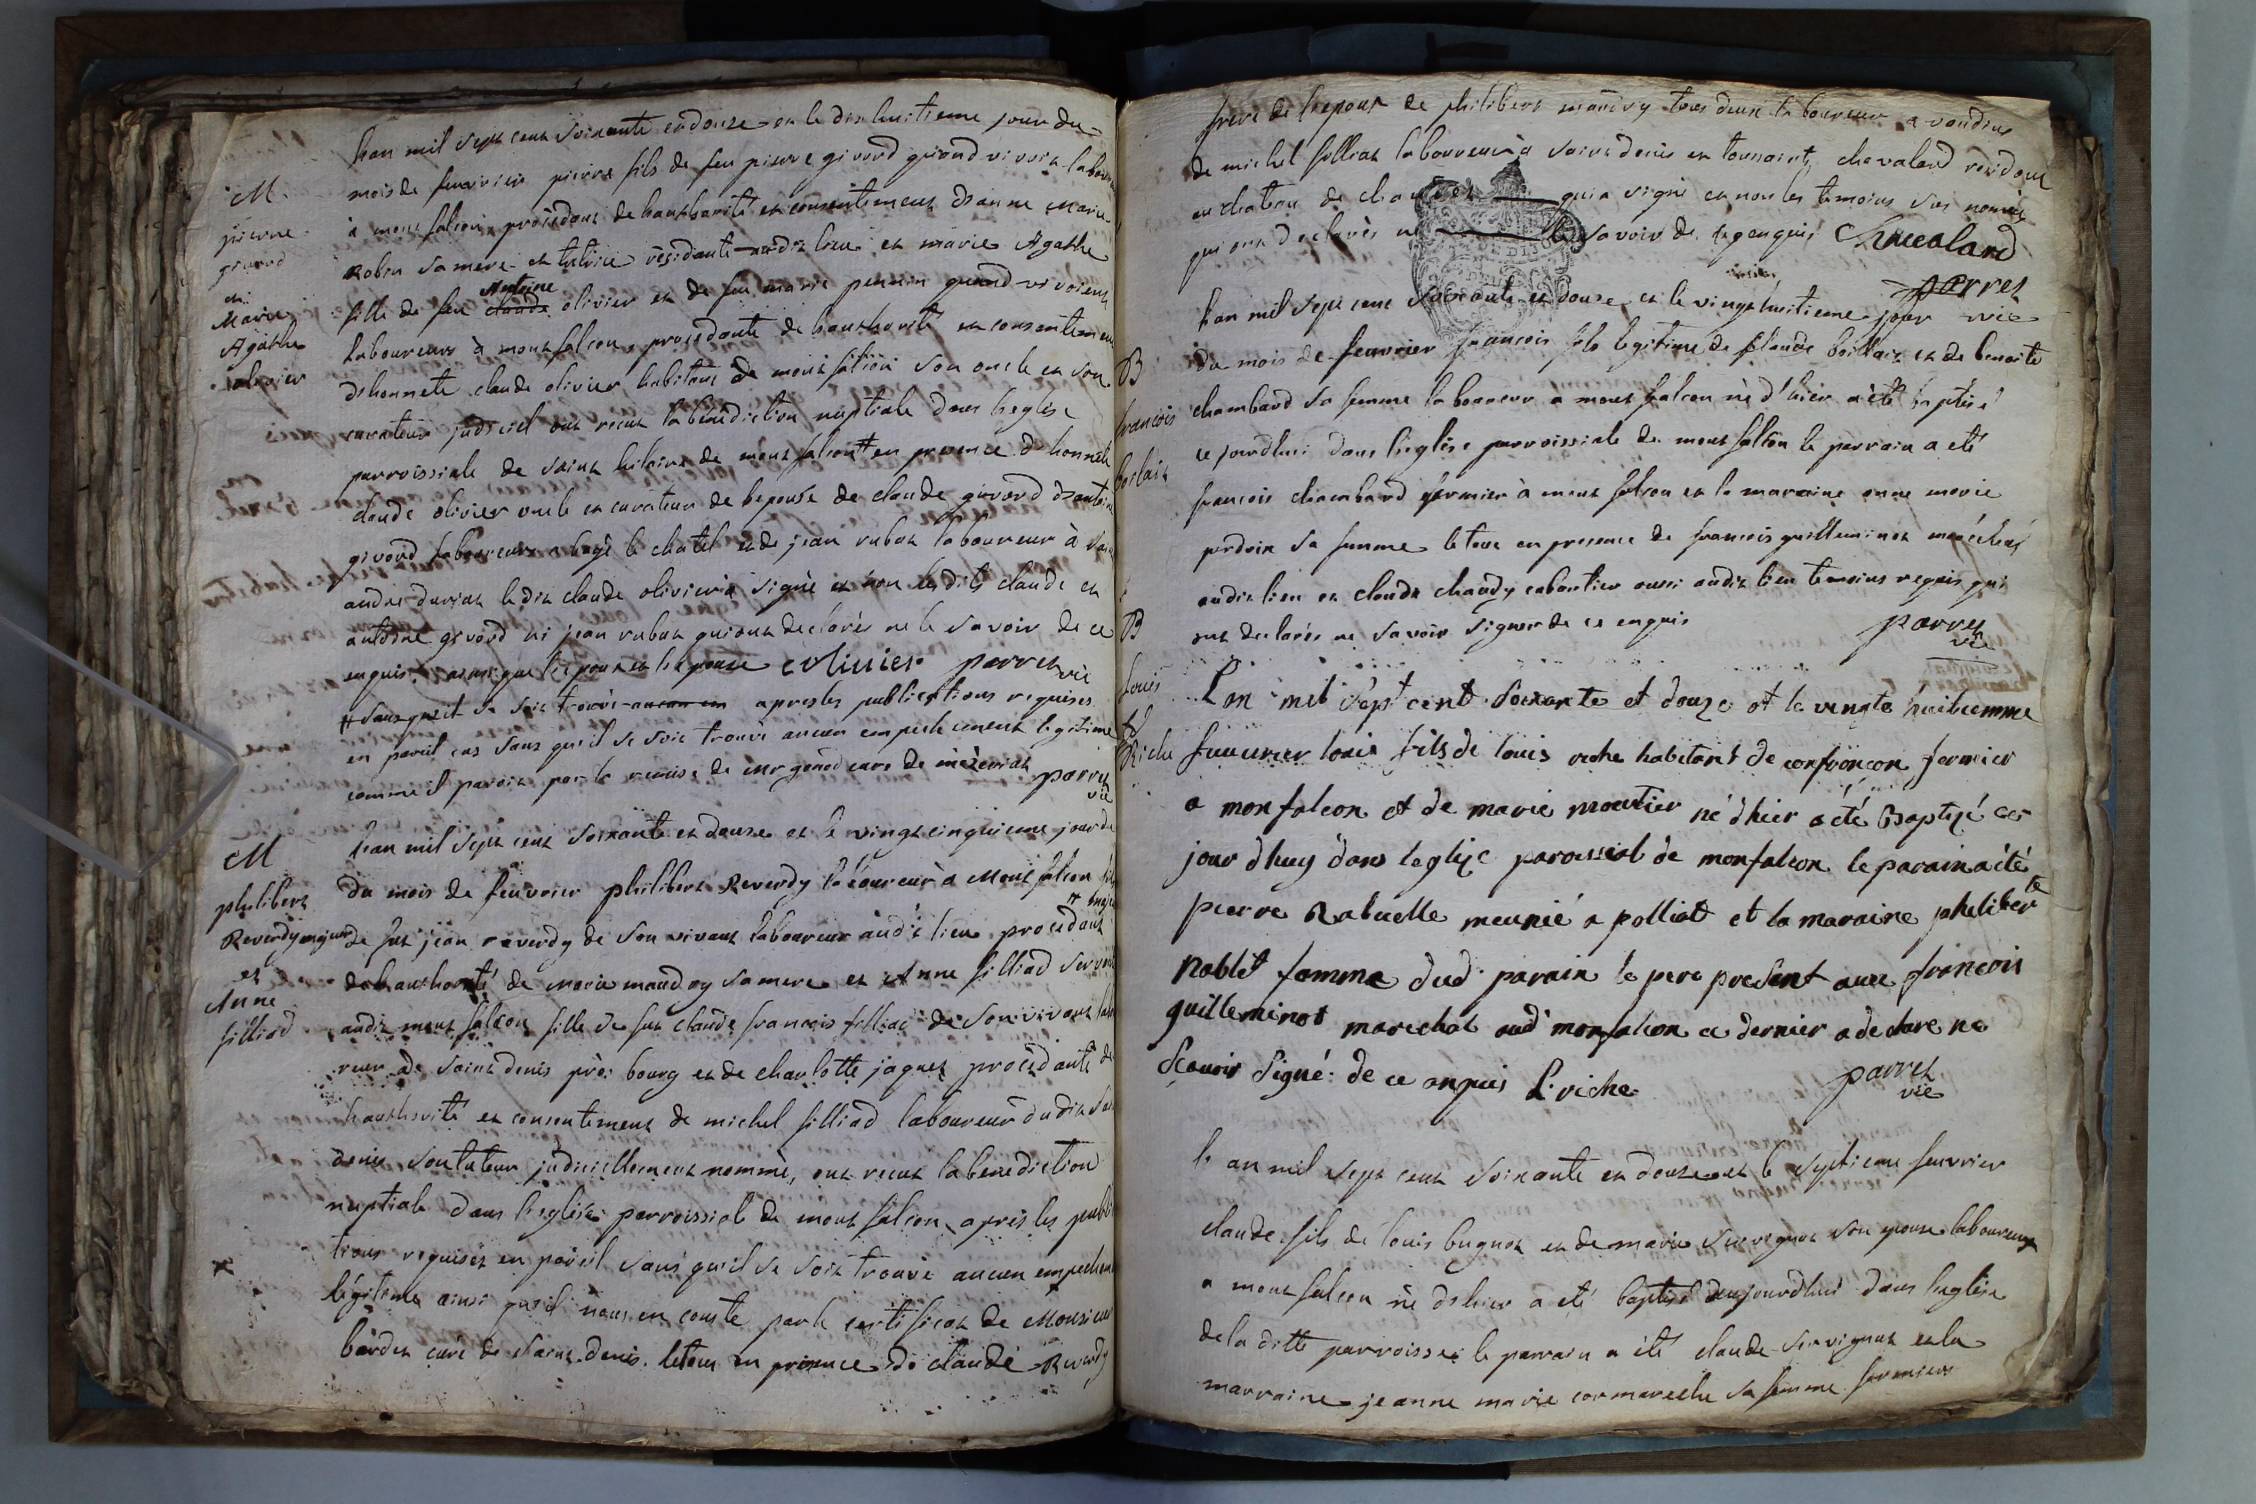 M.
pierre
givord
et
Marie
Agathe
olivier
lan mil sept cent soixante et douze et le dix huitieme jour du
mois de feuvrier pierre fils de feu pierre givord quand vivoit labour
à mont falcon procèdant de lauthorité et consentement danne Marie
Robin sa mere et tutrice résidante audit lieu et marie Agathe
Antoine
fille de feu claude olivier et de feu marie perrin quand vivoient
laboureurs à mont falcon, procèdante de lauthorité et consentement
dhonnete claude olivier habitant de mont falcon son oncle et son
curateur judiciel ont recut la bénèdiction nuptiale dans leglise
parroissiale de saint hilaire de mont falcon # en presence d honnete
claude olivier oncle et curateur de lepouse de claude givord dantoine
givord laboureurs a bagé le chatel et de jean rubat laboureur à st
andre duriat le dit claude olivier à signé et non lesdits claude et
antoine givord ni jean rubat qui ont declarés ne le savoir de ce
enquis, ainsi que lepoux et lepouse cOlivier parret vic
# sans quil se soit trouvè aucun em apres les publications requises
en pareil cas sans quil se soit trouvè aucun empechement legitime
comme il paroit par la remise de mr genod curé de mezeriat parret
vic
M
philibert
Reverdy majeur
et
Anne
filliad
lan mil sept cent soixante et douze et le vingt cinquieme jour de
du mois de feuvrier philibert Reverdy laboureur à Mont falcon fils
# maje
de fut jean reverdy de son vivant laboureur audit lieu procedant
de lauthorité de marie mandoy sa mere et Anne filliad servante
audit mont falcon fille de fut claude francois filliad de son vivant labo
reur de saint denis près bourg et de charlotte jaquet procèdante de
lauthorité et consentement de michel filliad laboureur dudit saint
denis son tuteur judiciellement nommé, ont recut la benediction
nuptiale dans leglise parroissiale de mont falcon apres les publi
tions requises en pareil sans quil se soit trouvè aucun empechem
legitime ainsi quil nous en conste par le certificat de Monsieur
bardet curé de saint denis. le tout en prèsence de claude Reverdy
frere de lepoux de philibert mandoy tous deux laboureur a vandins
de michel filliat laboureur à saint denis et toussaint chavaland residant
au chateau de cha qui a signé et non les temoins sus només
qui ont declarès ne le savoir de ce enquis Chavaland
parret
vic
B
francois
boilait
lan mil sept cent soixante et douze et le vingt huitieme jour
du mois de feuvrier francois fils legitime de claude boillait et de benoite
chambard sa femme laboureur a mont falcon né d'hier a èté baptisé
ce jourdhui dans leglise parroissiale de mont falcon le parrain a eté
francois chambard fermier à mont falcon et la maraine anne marie
perdrix sa femme le tout en presence de francois guilleminot maréchal
audit lieu et claude chaudy cabartier aussi audit lieu temoins requis qui
ont declarés ne savoir signer de ce enquis parret
vic
B
Louis
Riche
Lan mil Sept cent Soixante et douze et le vingte huitiemme
feuverier louis fils de louis riche habitant de confrançon fermier
a monfalcon et de marie moutier né dhier a cté Baptizé ces
jour dhuy dans leglize paroissial de monfalcon le parain a été
pierre Rabuelle meunié a polliat et la maraine pheliberte
Noblet famme dud parain le pere present avec françois
guilleminot marechal aud monfalcon ce dernier a declare ne
Scavoir Signé de ce anquis L riche parret
vic
lan mil sept cent soixante et douze et le septieme feuvrier
claude fils de louis bugnot et de marie servignat son epouse laboureurs
a mont falcon né dhier a eté baptisé aujourdhui dans leglise
de la ditte parroisse le parrain a èté claude servignat et la
marraine jeanne marie cormareche sa femme fermiers